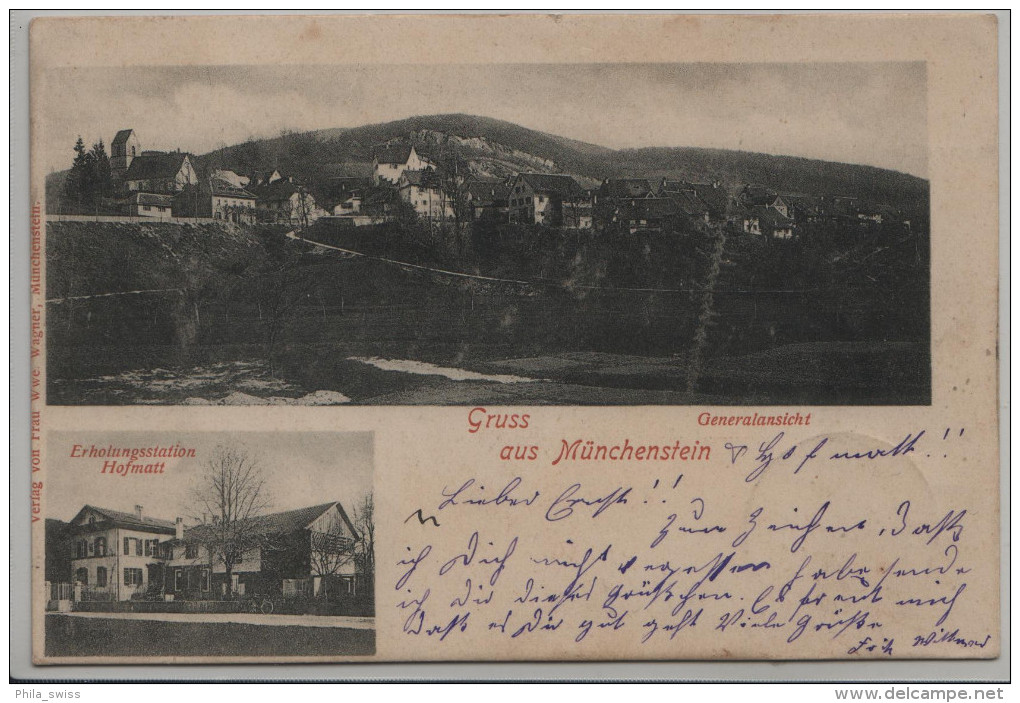 Verlag von Frau Wwe. Wagner, Münchenstein.
Gruss
aus Münchenstein
Generalansicht
Erholungsstation
Hofmatt
& Hofmatt!!
Lieber Ernst!!
Zum Zeichen, dasß
ich Dich nicht vergessen habe sende
ich dir dieses Grüßchen. Es freut mich
dasß es Dir gut geht Viele Grüße
Fritz
Phila_swiss
http://www.delcampe.net